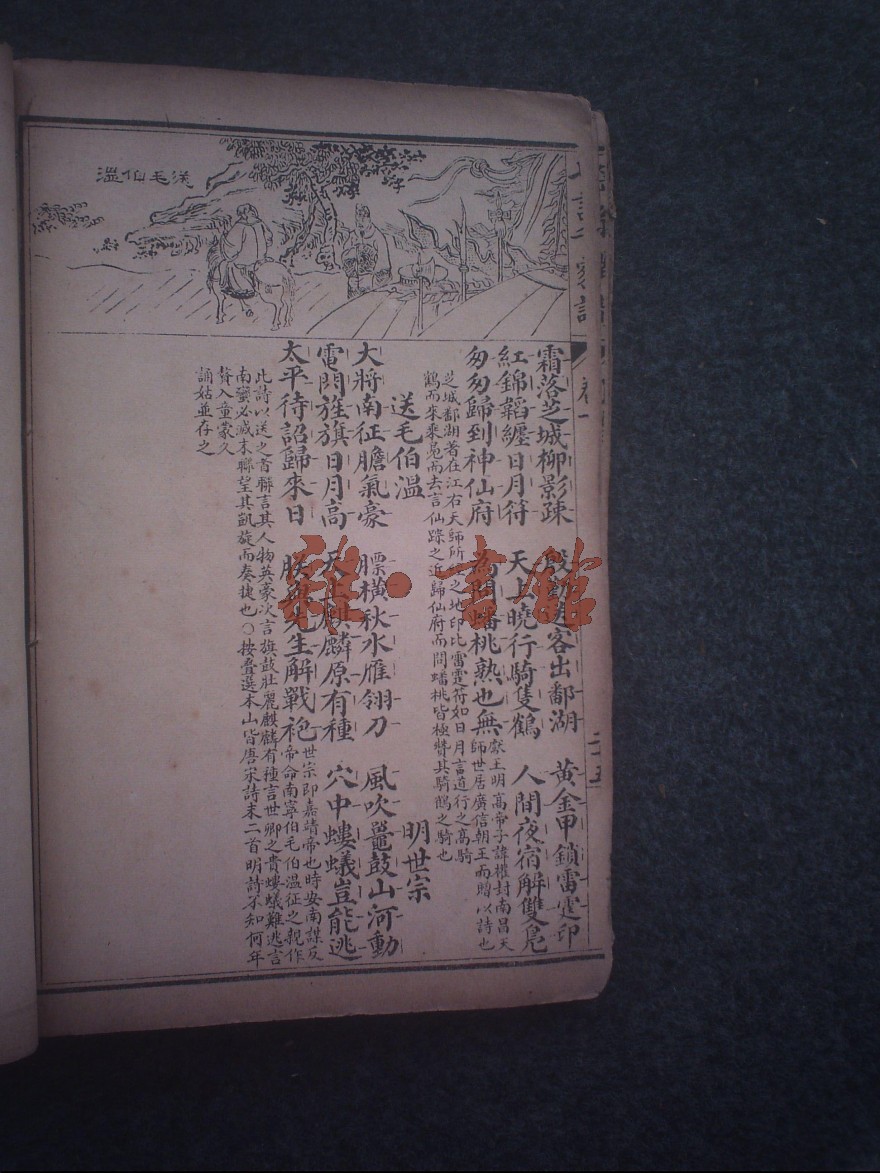 送毛伯溫
家詩
卷一
二十五
霜落芝城柳影疎 殷勤送客出鄱湖 黃金甲鎖雷霆印
紅錦韜纏日月符 天上曉行騎隻鶴 人間夜宿解雙鳧
匆匆歸到神仙府 為問蟠桃熟也無
獻王明高帝子諱權封南昌天
師世居廣信朝王而贈以詩也
芝城鄱湖著在江右天師所經之地印比雷霆符如日月言道行之高騎
鶴而來乘鳧而去言仙踪之近歸仙府而問蟠桃皆極贊其騎鶴之騎也
送毛伯溫 明世宗
大將南征膽氣豪 腰橫秋水雁翎刀 風吹鼉鼓山河動
電閃旌旗日月高 天上麒麟原有種 穴中螻蟻豈能逃
太平待詔歸來日 朕與先生解戰袍
世宗即嘉靖帝也時安南謀反
帝命南寧伯毛伯溫征之親作
此詩以送之首聯言其人物英豪次言旗鼓壯麗麒麟有種言世卿之貴螻蟻難逃言
南蠻必滅末聯望其凱旋而奏捷也○按疊選本山皆唐宋詩末二首明詩不知何年
贅入童蒙久
誦姑並存之
雜·書館